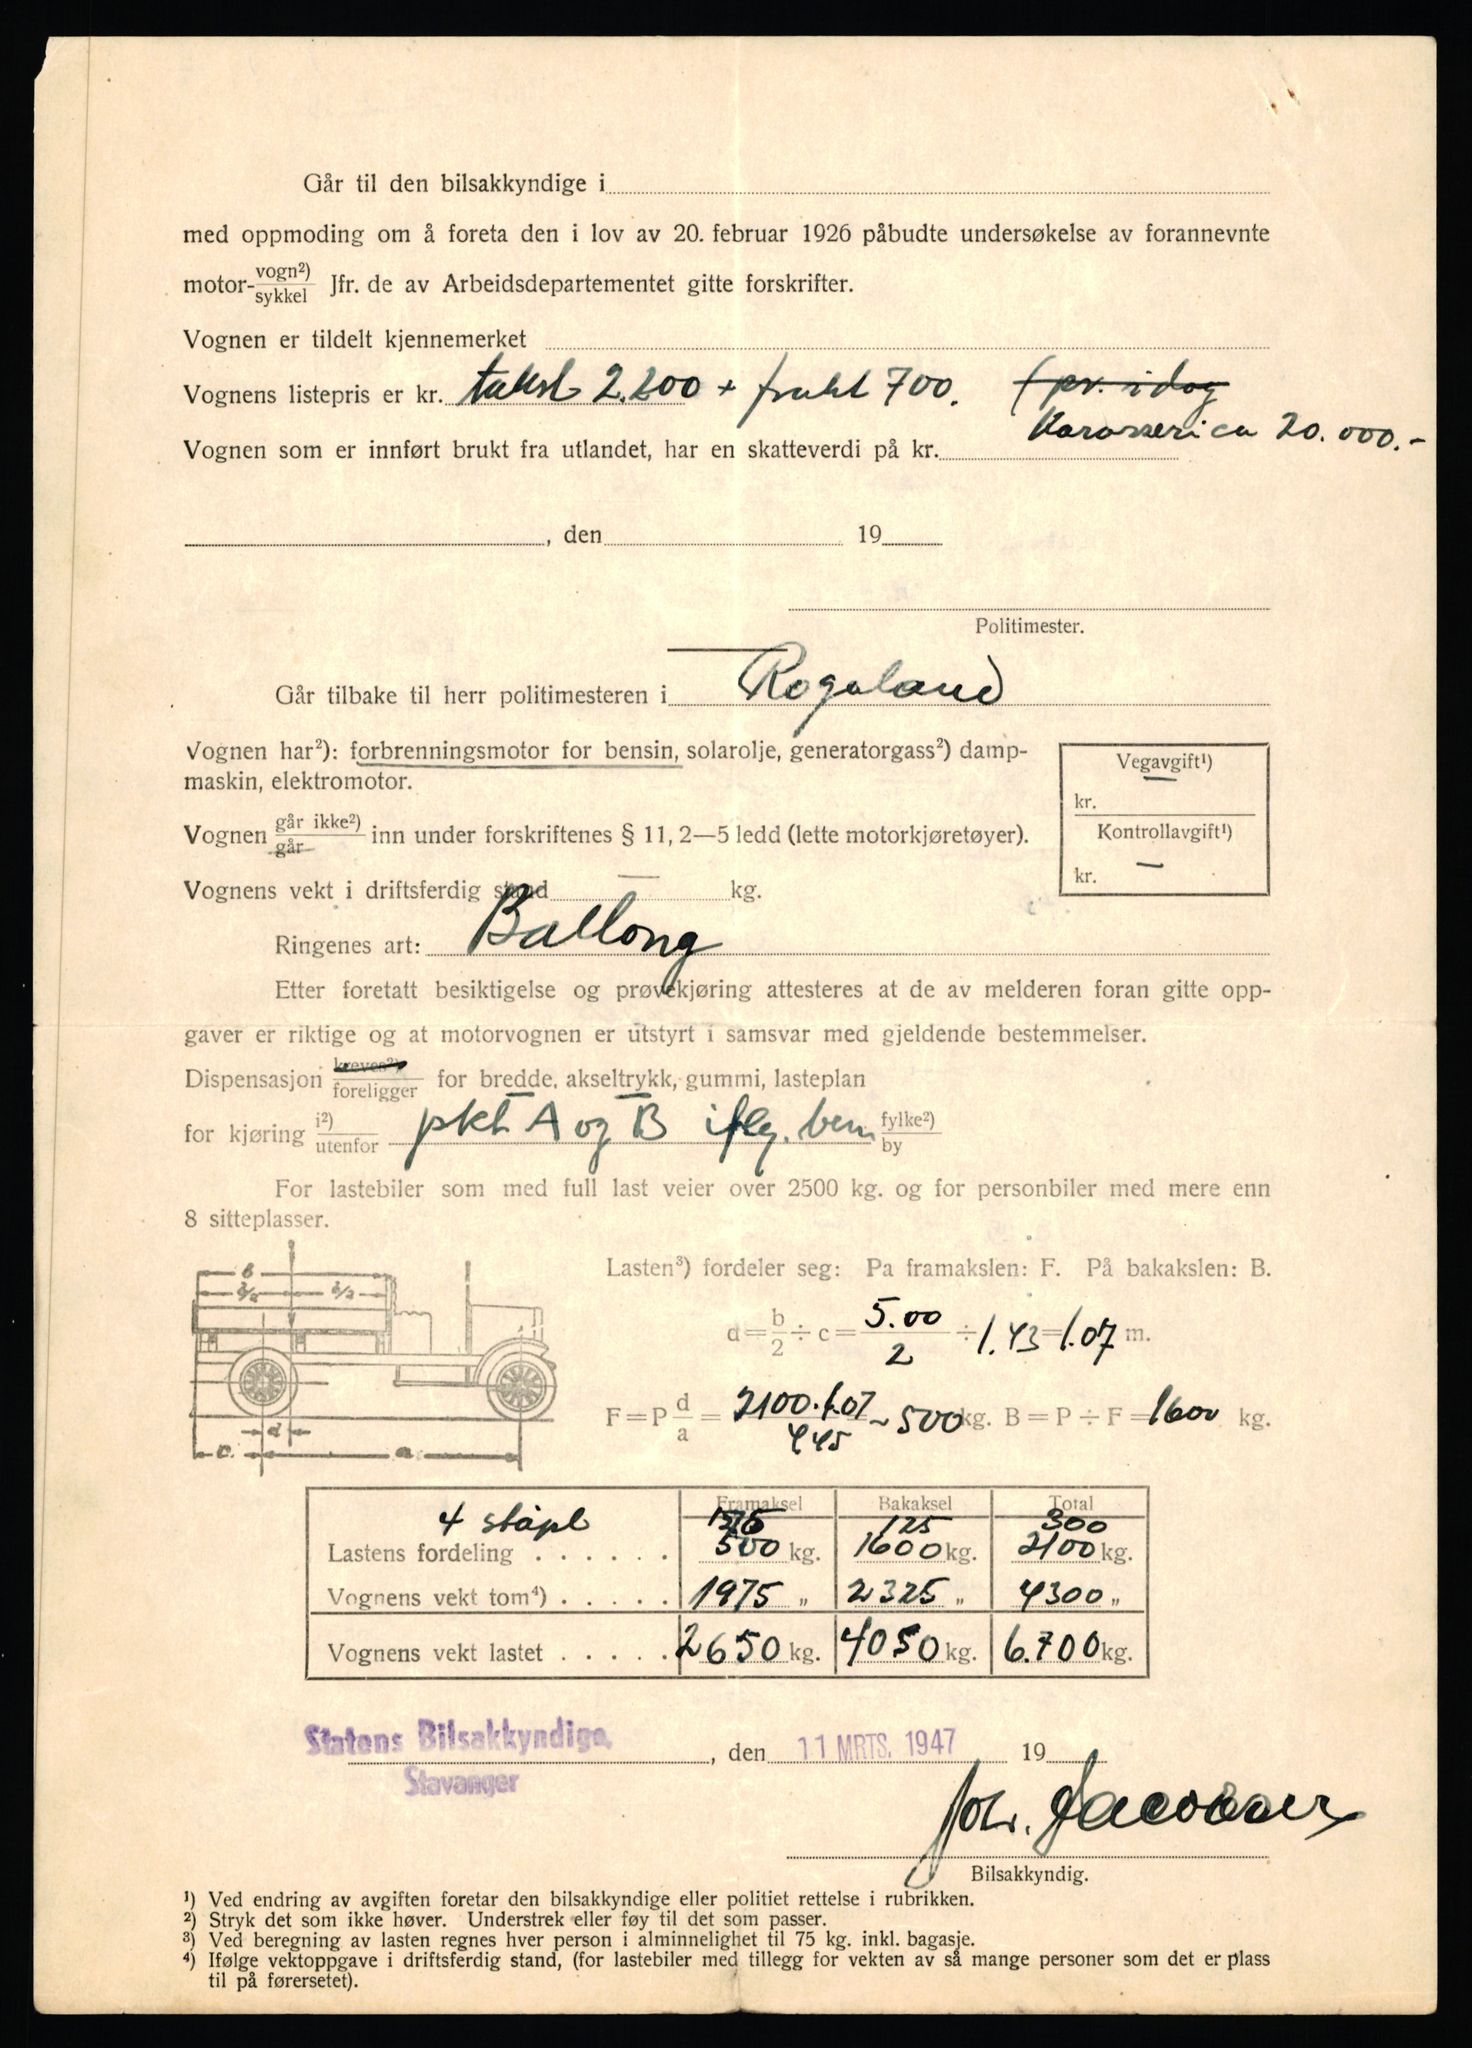 Går til den bilsakkyndige i
med oppmoding om å foreta den i lov av 20. februar 1926 påbudte undersøkelse av forannevnte
motor-vogn²)/sykkel Jfr. de av Arbeidsdepartementet gitte forskrifter.
Vognen er tildelt kjennemerket
Vognens listepris er kr. takst 2.200 + frakt 700. (pr. idag
Karosseri ca 20.000.-
Vognen som er innført brukt fra utlandet, har en skatteverdi på kr.
, den 19
Politimester.
Går tilbake til herr politimesteren i Rogaland
Vognen har²): forbrenningsmotor for bensin, solarolje, generatorgass²) damp-
maskin, elektromotor.
Vegavgift¹)
—
kr.
Kontrollavgift¹)
—
kr.
Vognen går ikke²)/går inn under forskriftenes § 11, 2—5 ledd (lette motorkjøretøyer).
Vognens vekt i driftsferdig stand — kg.
Ringenes art: Ballong
Etter foretatt besiktigelse og prøvekjøring attesteres at de av melderen foran gitte opp-
gaver er riktige og at motorvognen er utstyrt i samsvar med gjeldende bestemmelser.
Dispensasjon kreves²)/foreligger for bredde, akseltrykk, gummi, lasteplan
for kjøring i²)/utenfor pkt A og B iflg. bem fylke²)/by
For lastebiler som med full last veier over 2500 kg. og for personbiler med mere enn
8 sitteplasser.
Lasten³) fordeler seg: Pa framakslen: F. På bakakslen: B.
d = b/2 ÷ c = 5.00/2 ÷ 1.43 = 1.07 m.
F = P d/a = 2100.1.07/445 ~ 500 kg. B = P ÷ F = 1600 kg.
b
b/2 b/2
d
c. a
Framaksel Bakaksel Total
4 ståpl 175 125 300
Lastens fordeling . . . . . . 500 kg. 1600 kg. 2100 kg.
Vognens vekt tom⁴) . . . . . 1975 „ 2325 „ 4300 „
Vognens vekt lastet . . . . . 2650 kg. 4050 kg. 6.700 kg.
Statens Bilsakkyndige, , den 11 MRTS. 1947 19
Stavanger
Joh. Jacobsen
Bilsakkyndig.
¹) Ved endring av avgiften foretar den bilsakkyndige eller politiet rettelse i rubrikken.
²) Stryk det som ikke høver. Understrek eller føy til det som passer.
³) Ved beregning av lasten regnes hver person i alminnelighet til 75 kg. inkl. bagasje.
⁴) Ifølge vektoppgave i driftsferdig stand, (for lastebiler med tillegg for vekten av så mange personer som det er plass
til på førersetet).